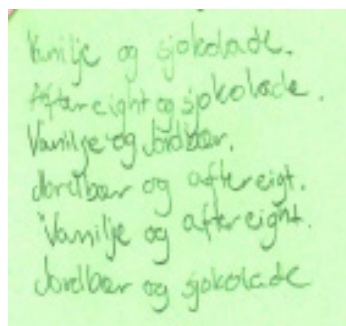 Vanilje og sjokolade.
After eight og sjokolade.
Vanilje og Jordbær.
Jordbær og aftereigt.
Vanilje og aftereight.
Jordbær og sjokolade